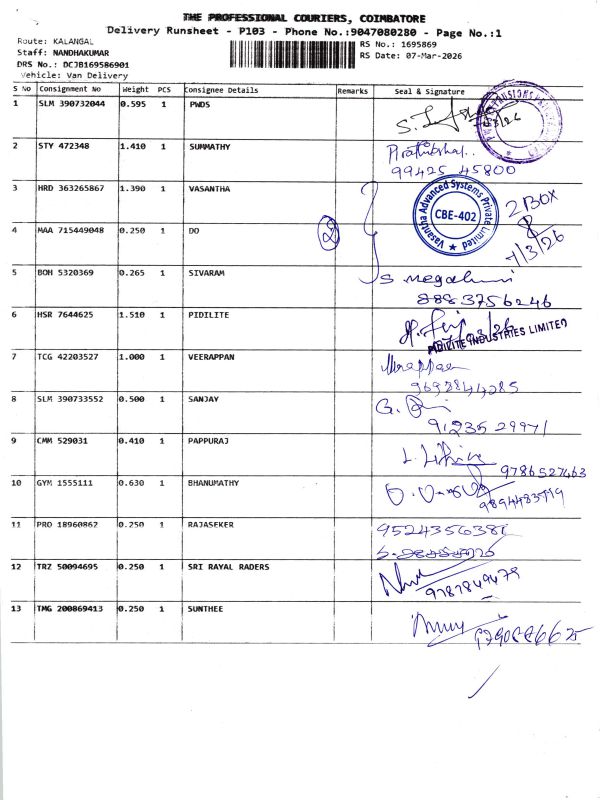 THE PROFESSIONAL COURIERS, COIMBATORE
Delivery Runsheet - P103 - Phone No.:9047080280 - Page No.:1
Route: KALANGAL
Staff: NANDHAKUMAR
DRS No.: DCJB169586901
Vehicle: Van Delivery
RS No.: 1695869
RS Date: 07-Mar-2026
S No Consignment No Weight PCS Consignee Details Remarks Seal & Signature
1 SLM 390732044 0.595 1 PWDS
2 STY 472348 1.410 1 SUMMATHY
99425 45800
3 HRD 363265867 1.390 1 VASANTHA
Vasantha Advanced Systems Private Limited
CBE-402
2 BOX
7/3/26
4 MAA 715449048 0.250 1 DO 2
5 BOM 5320369 0.265 1 SIVARAM
S megaluni
8883756246
6 HSR 7644625 1.510 1 PIDILITE
PIDILITE INDUSTRIES LIMITED
7 TCG 42203527 1.000 1 VEERAPPAN
8 SLM 390733552 0.500 1 SANJAY
91235 29971
9 CMM 529031 0.410 1 PAPPURAJ
9786527463
10 GYM 1555111 0.630 1 BHANUMATHY
11 PRD 18960862 0.250 1 RAJASEKER
12 TRZ 50094695 0.250 1 SRI RAYAL RADERS
9787849479
13 TMG 200869413 0.250 1 SUNTHEE